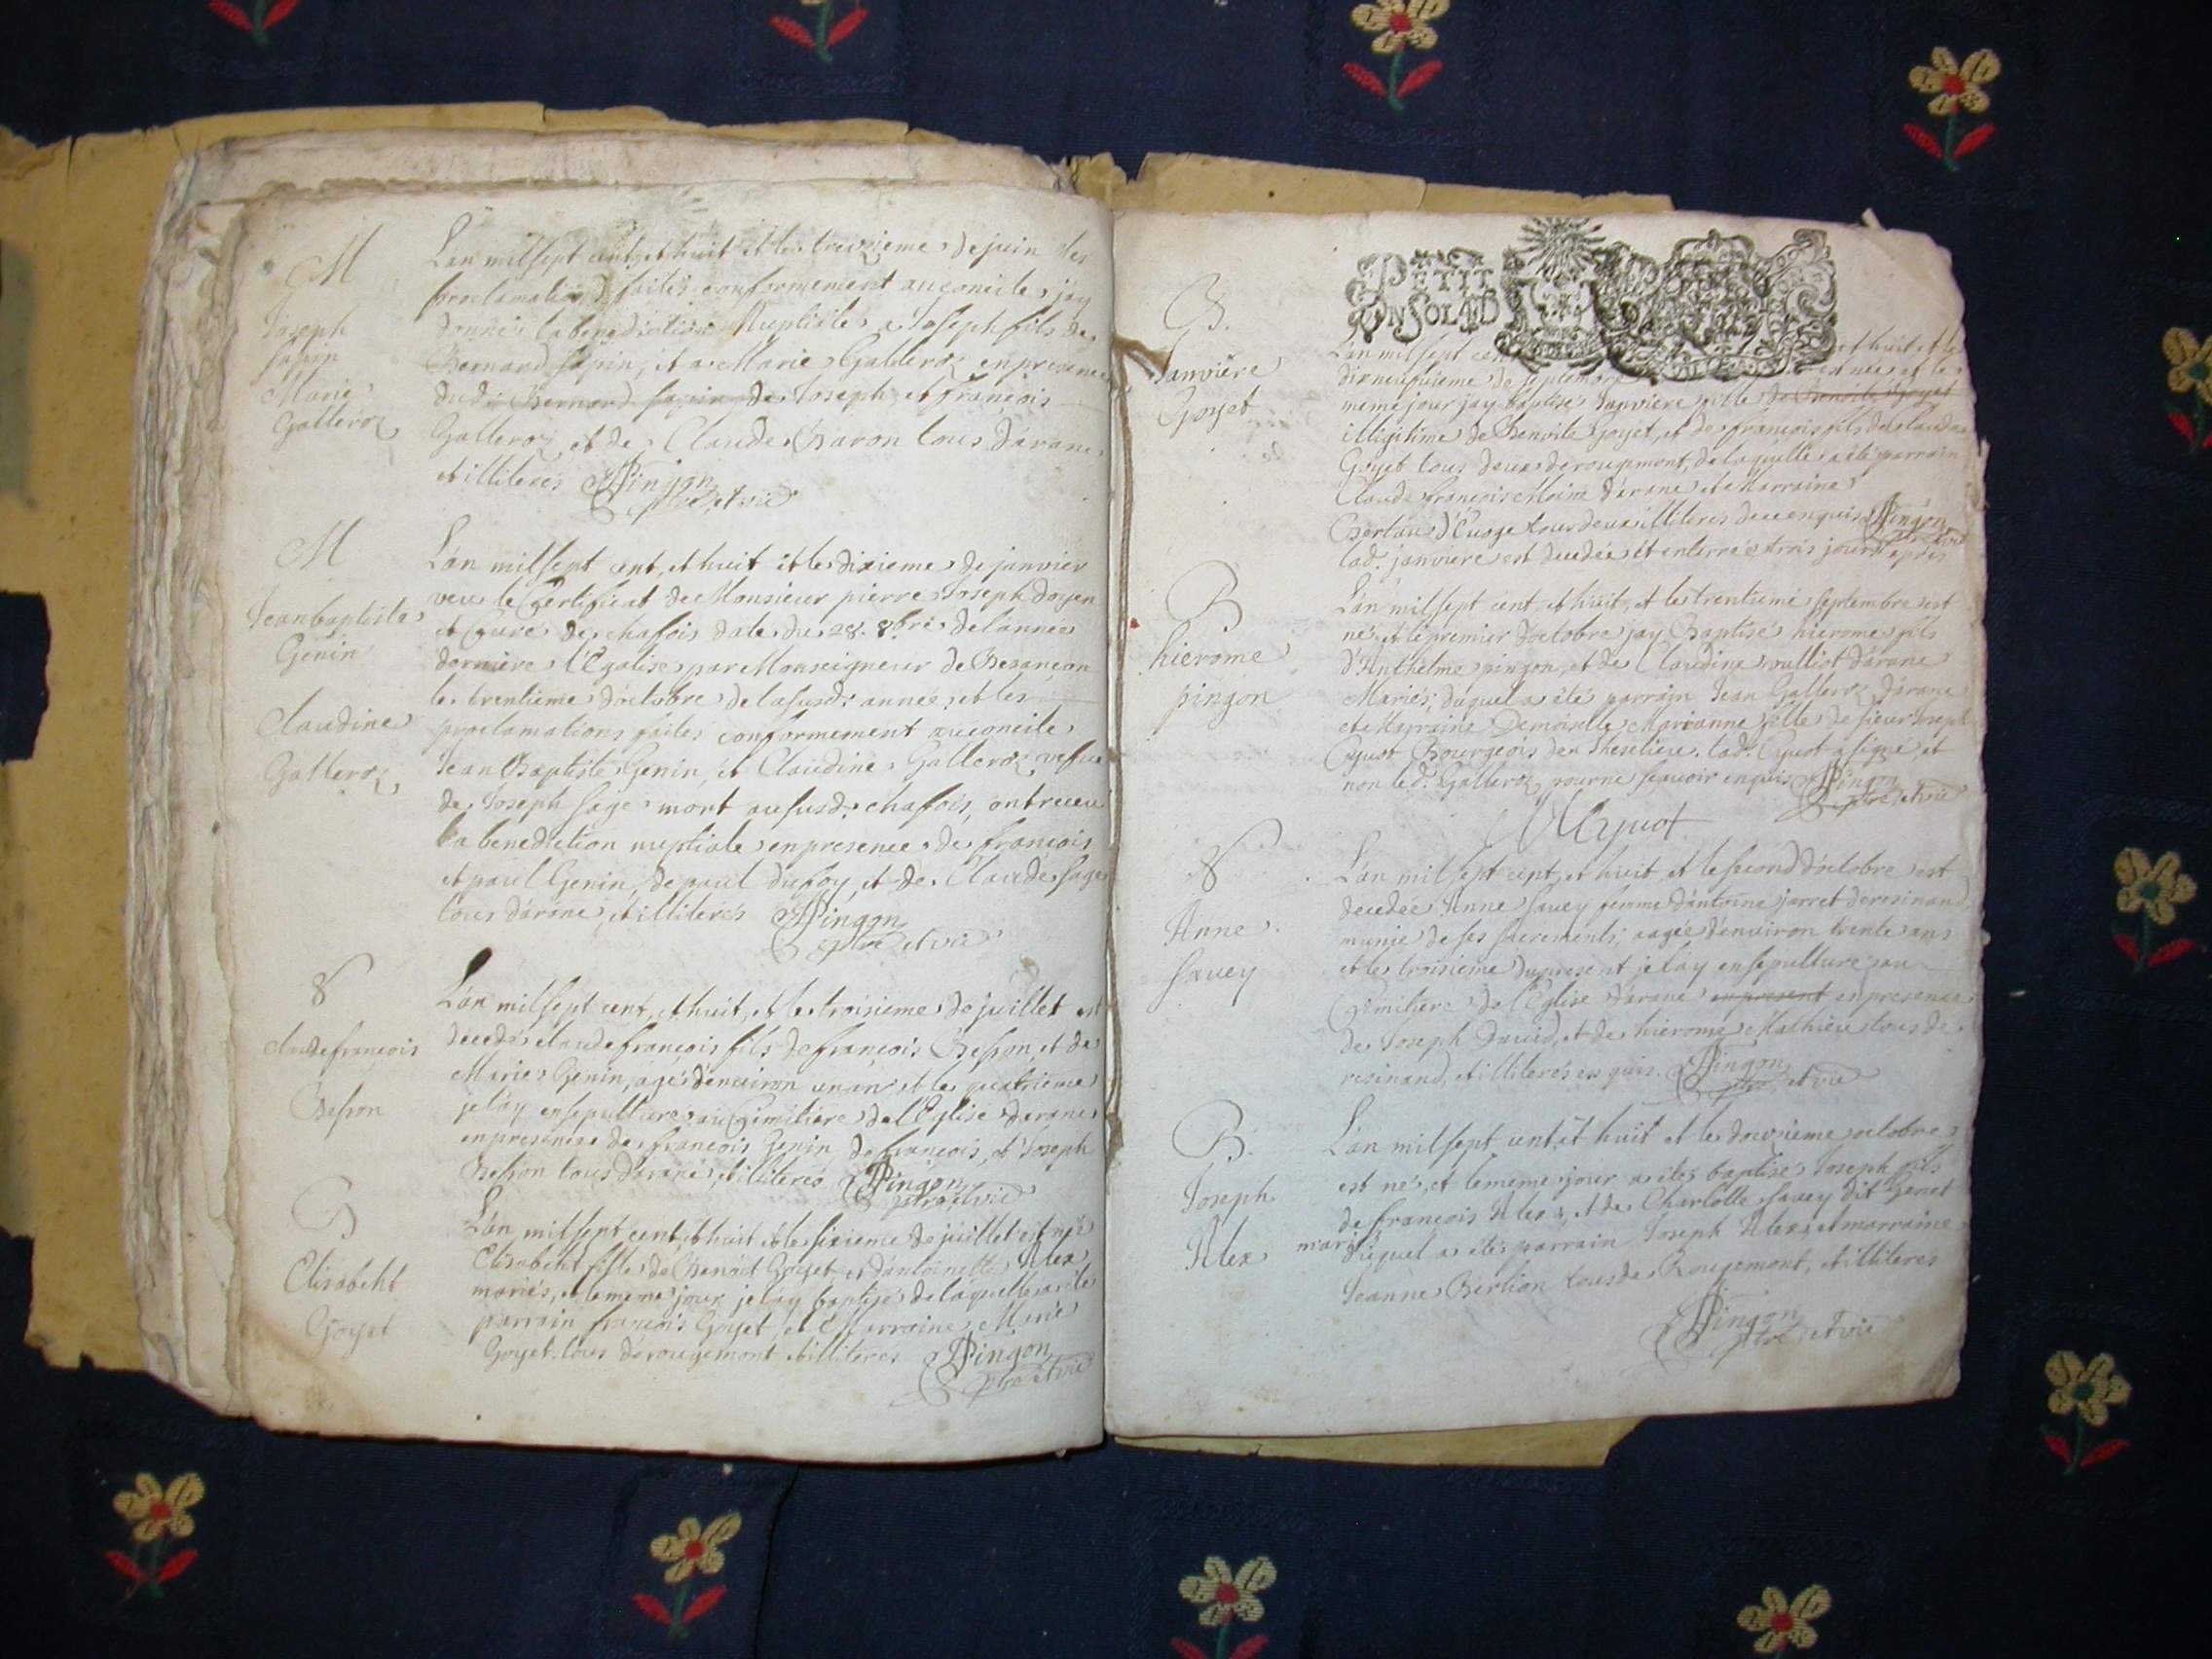 M
Joseph
sapin
Marie
Galleroz
L'an mil sept cent, et huit et le treizieme de juin les
proclamations faites conformement au concile, jay
donnée la benediction Nuptiale a Joseph fils de
Bernard sapin, et a Marie Galleroz en presence
dud. Bernard sapin, de Joseph, et françois
Galleroz et de Claude Baron tous d'arane,
et illiterés Pingon
ptre et vic
M
Jean baptiste
Genin
Claudine
Galleroz
L'an mil sept cent, et huit et le dixieme de janvier
veu le Certificat de Monsieur pierre Joseph doyen
et Curé de chafois daté du 28. 8bre de l'année
derniere, l'Egalisé par Monseigneur de Besançon
le trentieme d'octobre de la susd. année, et les
proclamations faites conformement au concile
Jean Baptiste Genin, et Claudine Galleroz vefve
de Joseph sage mort au susd. chafois, ont receu
la benediction nuptiale en presence de françois
et paul Genin, de paul dufoy, et de Claude sage
tous d'arane, et illiterés Pingon
ptre et vic
8
claude françois
Besson
L'an mil sept cent, et huit, et le troisieme de juillet est
decedé claude françois fils de françois Besson, et de
Marie Genin, agé d'environ un an et le quatrieme
je l'ay ensepulturé au Cimitiere de l'Eglise d'arane
en presence de françois Genin, de françois, et Joseph
Besson tous d'arane, et illiterés Pingon
ptre et vic
B
Elisabeht
Goyet
L'an mil sept cent, et huit et le sixieme de juillet est née
Elisabeht fille de Benoit Goyet, et d'antoinette Alex
mariés, et le meme jour je l'ay baptisé de laquelle a été
parrain françois Goyet, et Marraine Marie
Goyet tous de rougemont et illiterés Pingon
ptre et vic
PETIT
ON SOL 4 D
B.
Janviere
Goyet
L'an mil sept cent et huit, et le
dixneufvieme de septembre est née et le
meme jour jay baptisé Janviere fille de Benoite Goyet
illigitime de Benoite Goyet, et de françois fils de Claude
Goyet tous deux de rougemont, de laquelle a été parrain
Claude françois Moine d'arane et Marraine
Bertau d'Evoge tous deux illiterés de ce enquis Pingon
ptre et vic
lad. janviere est decedée et enterrée trois jours apres
B
hierome
pingon
L'an mil sept cent, et huit, et le trentieme septembre est
né, et le premier d'octobre jay Baptisé hierome fils
d'Anthelme pingon, et de Claudine vulliot d'arane
Mariés, duquel a été parrain Jean Galleroz d'arane
et Marraine Demoiselle Marianne fille de sieur Joseph
Cyvot Bourgeois de Thesilieu. lad. Cyvot a signé, et
non led. Galleroz pour ne scavoir enquis Pingon
ptre et vic
M Cyvot
8
Anne
savey
L'an mil sept cent, et huit, et le second d'octobre est
decedée Anne savey femme d'antoine jarret de resinand,
munie de ses sacrements, aagée d'environ trente ans
et le troisieme du present je l'ay ensepulturé au
Cimitiere de l'Eglise d'arane en present en presence
de Joseph David, et de hierome Mathieu tous de
resinand, et illiterés enquis. Pingon
ptre et vic
B.
Joseph
Alex
L'an mil sept cent, et huit et le douzieme octobre
est né, et le meme jour a été baptisé Joseph fils
de françois Alex, et de Charlotte savey dit Genet
mariés duquel a été parrain Joseph Alex, et marraine
Jeanne Berlion tous de Rougemont, et illiterés
Pingon
ptre et vic